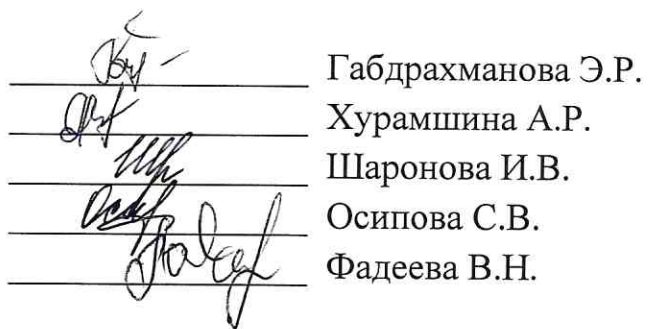 Габдрахманова Э.Р.
Хурамшина А.Р.
Шаронова И.В.
Осипова С.В.
Фадеева В.Н.